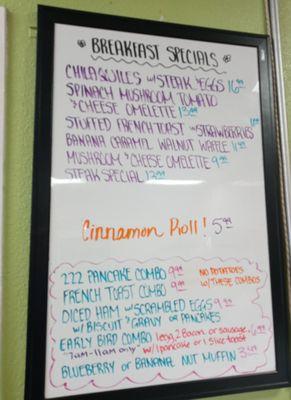 BREAKFAST SPECIALS
CHILAQUILES w/ STEAK & EGGS 16.99
SPINACH MUSHROOM TOMATO
& CHEESE OMELETTE 13.99
STUFFED FRENCH TOAST w/ STRAWBERRIES
BANANA CARAMEL WALNUT WAFFLE 11.99
MUSHROOM & CHEESE OMELETTE 9.99
STEAK SPECIAL
Cinnamon Roll! 5.99
222 PANCAKE COMBO 9.99 NO POTATOES
FRENCH TOAST COMBO 9.99 w/ THESE COMBOS
DICED HAM w/ SCRAMBLED EGGS 9.99
w/ BISCUIT & GRAVY or PANCAKES
EARLY BIRD COMBO 1 egg, 2 Bacon or sausage, 6.99
"7am-11am only" w/ 1 pancake or 1 slice toast
BLUEBERRY or BANANA NUT MUFFIN 3.50